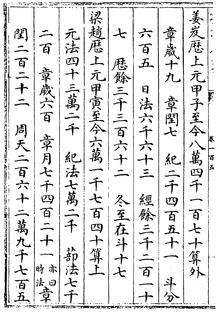 姜岌歷上元甲子至今八萬四千一百七十算外
章歲十九 章閏七 紀二千四百五十一 斗分
六百五 日法六千六十三 經餘三千二百一十
七 歷餘三千三百六十二 冬至在斗十七
梁趙歷上元甲寅至今六萬一千七百四十算上
元法四十三萬二千 紀法七萬二千 蔀法七千
二百 章歲六百 章月七千四百二十一 亦曰時法 章
閏二百二十二 周天二百六十二萬九千七百五